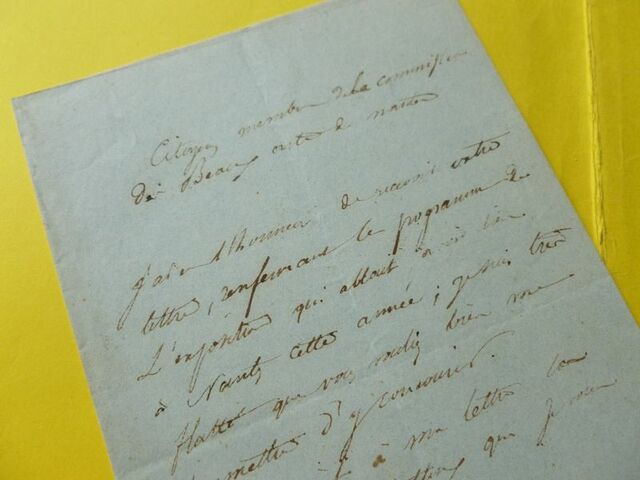 Citoyen membre de la commission
des Beaux arts de nantes
j'ai eu l'honneur de recevoir votre
lettre, renfermant le programme de
L'exposition qui allait avoir lieu
à Nantes cette année; je suis très
flatté que vous vouliez bien me
permettre d'y concourir.
à ma lettre
que je